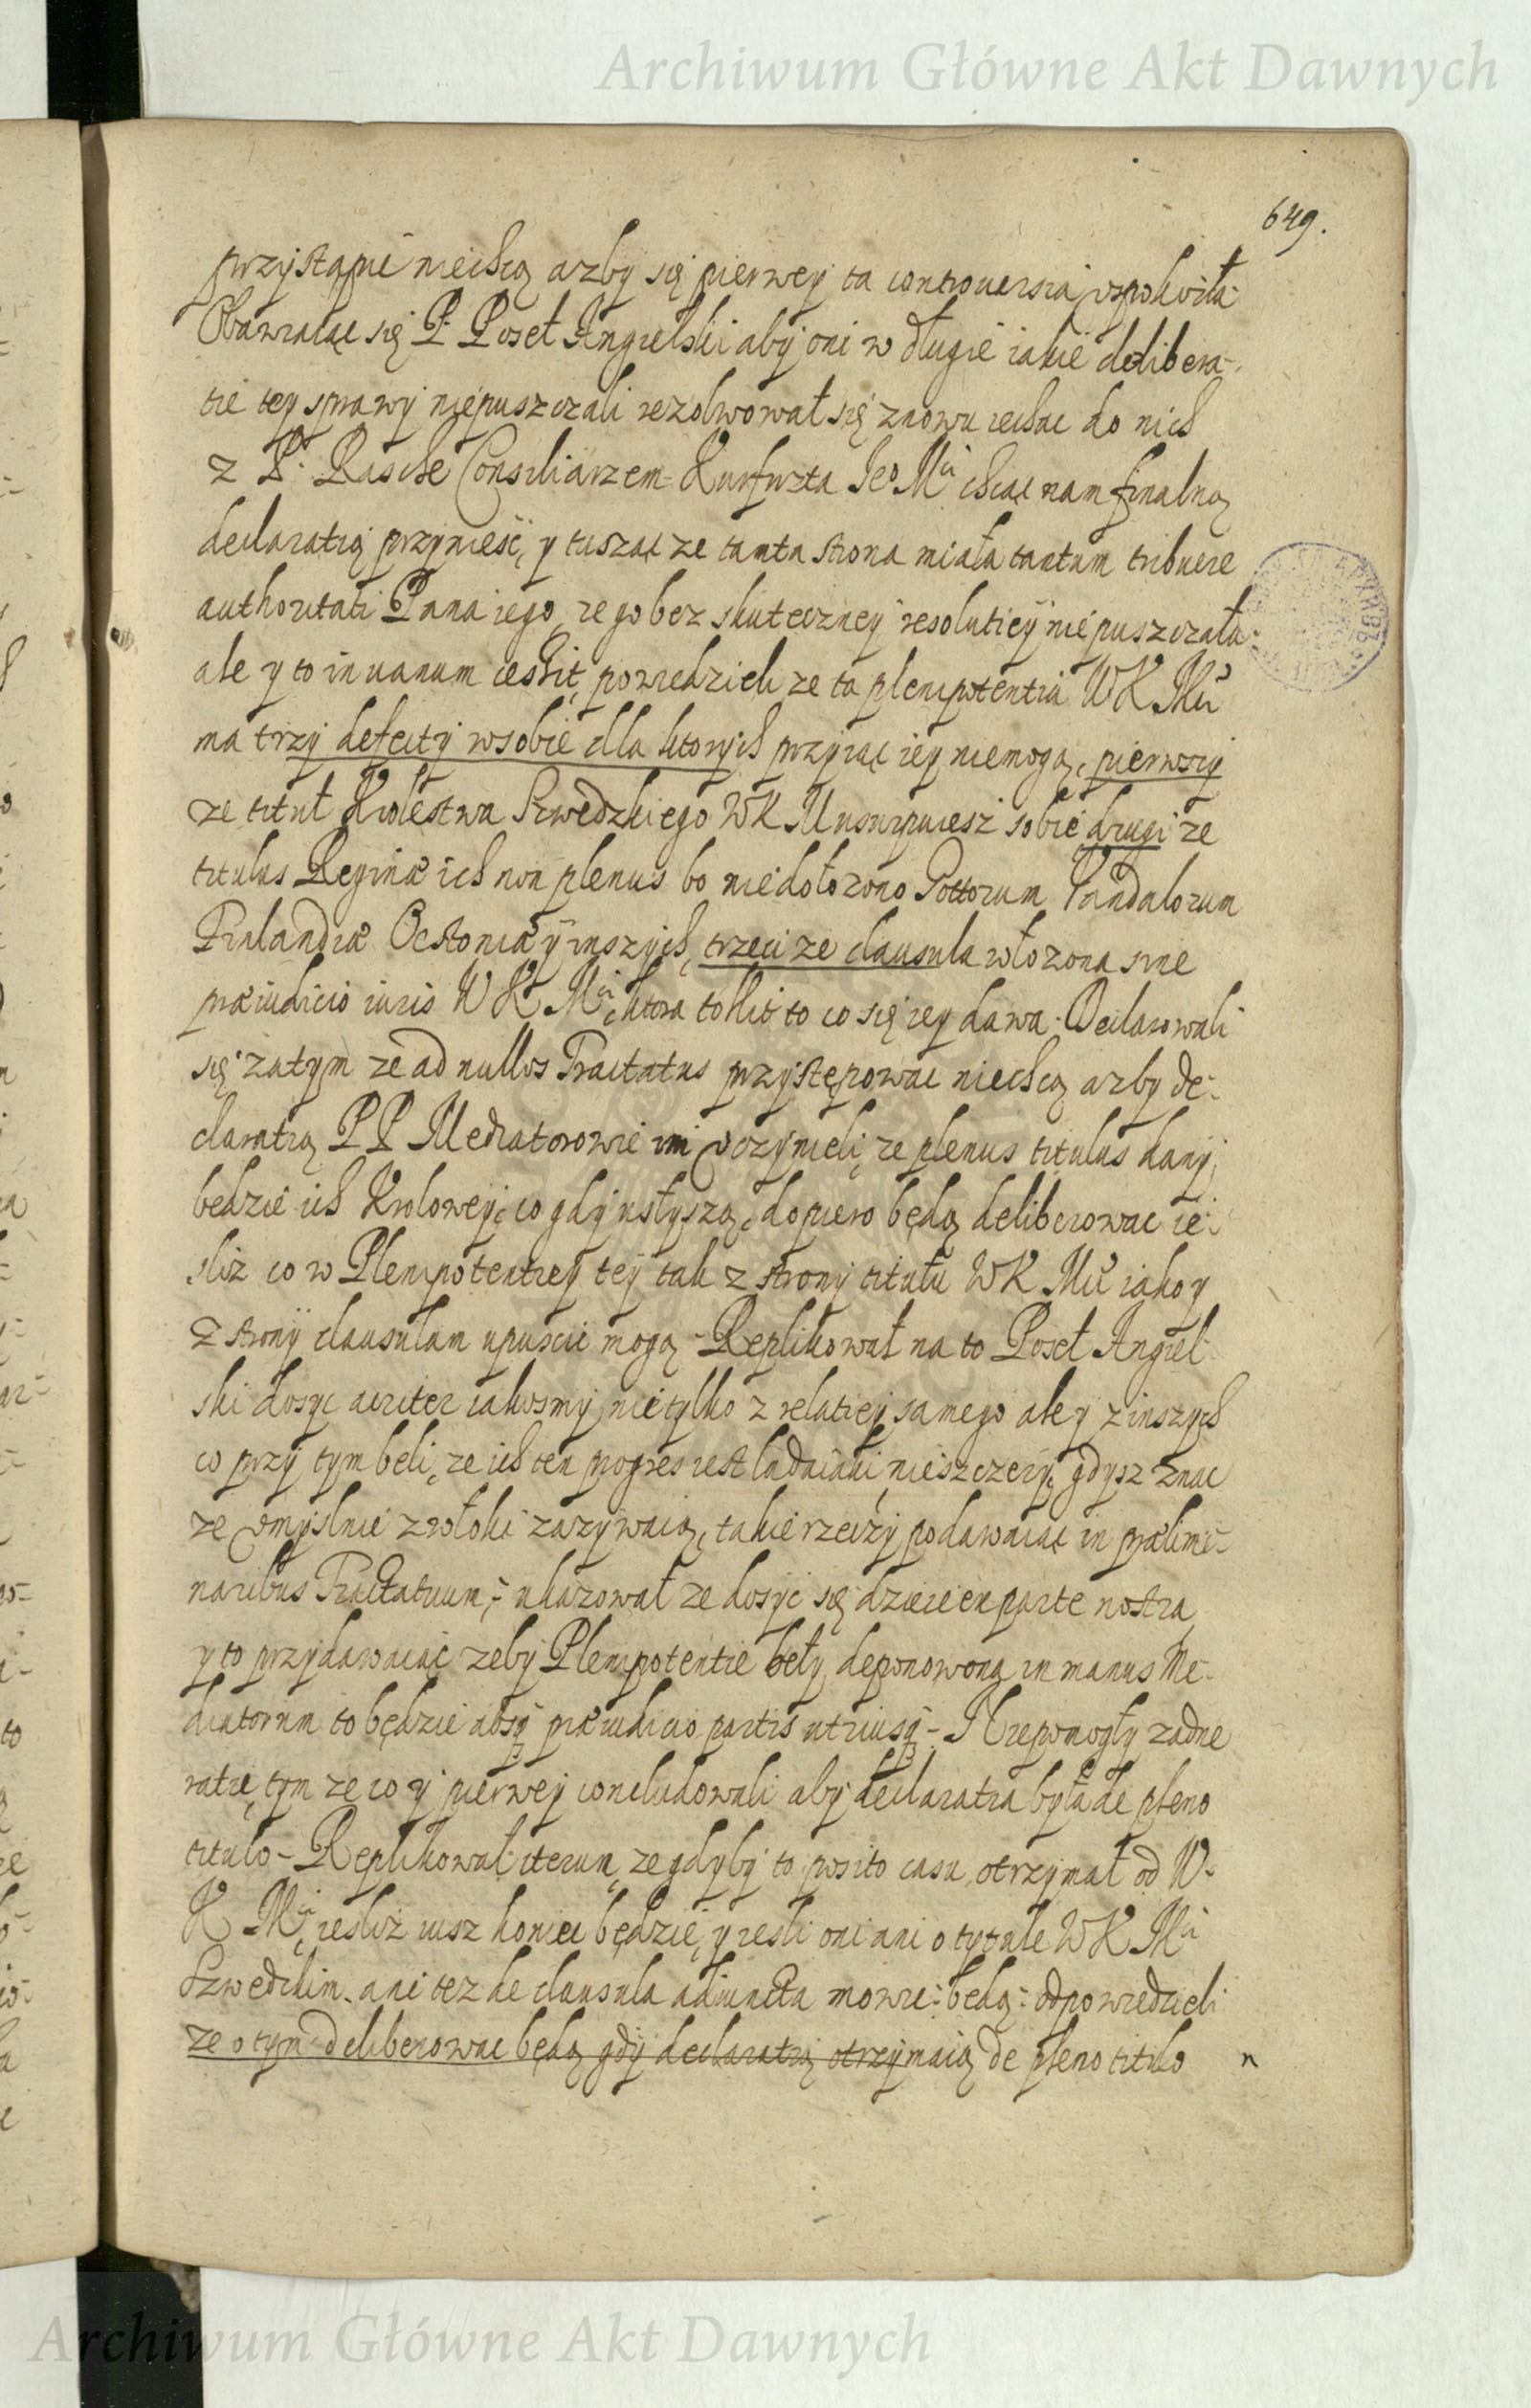 Archiwum Główne Akt Dawnych
649.
przystąpić niechcą azby się pierwey ta controuersia uspokoiła
Obawiaiąc się P. Poseł Angielski aby oni w długie iakie delibera-
tie tey sprawy niepuszczali rezolwował się znowu iechac do nich
z P. Rasche Consiliarzem Kurfirszta Jeo Mci chcąc nam finalną
declaratią przynieść, y tusząc ze tamta strona miała tantum tribuere
authoritati Pana iego, ze go bez skuteczney resolutiey niepuszczała
ale y to in uanum cessit, powiedzieli ze ta plenipotentia WK Mci
ma trzy defecty wsobie dla ktorych przyiąc iey niemogą, pierwszy
ze titul Krolestwa Szwedzkiego WK M usurpuiesz sobie drugi ze
titulus Reginæ ich non plenus bo niedołozono Gottorum Vandalorum
Finlandiæ Oestoniæ y inszych, trzeci ze clausula włozona sine
præiudicio iuris W K Mci, ktora tollit to co się iey dawa. Declarowali
się zatym ze ad nullos Tractatus przystępowac niechcą azby de-
claratią PP Mediatorowie im uczynieli, ze plenus titulus dany
będzie ich Krolowey, co gdy usłyszą, dopiero będą deliberowac ie-
sliz co w Plenipotentiey tey tak z strony titułu WK Mci iako y
z strony clausulam upuscic mogą - Replikował na to Poseł Angiel-
ski dosyc acriter iakosmy nietylko z relatiey samego ale y z inszych
co przy tym beli, ze ich ten progres iest ladaiaki nieszczery, gdysz znac
ze umyslnie zwłoki zazywaią, takie rzeczy podawaiąc in prælimi-
naribus Tractatuum, - ukazował ze dosyc się dzieie ex parte nostra
y to przydawaiąc zeby Plenipotentie beły deponowoną in manus Me-
diatorum to będzie absq præiudicio partis utriusq - Niepomogły zadne
ratie, tym ze co y pierwey concludowali aby declaratia była de pleno
titulo - Replikował iterum, ze gdyby to posito casu otrzymał od W-
K Mci, iesliz iusz koniec będzie, y iesli oni ani o tytule WK Mci
Szwedzkim, ani tez de clausula adiuncta mowic będą: odpowiedzieli
ze o tym deliberowac będą gdy declaratią otrzymaią de pleno titulo
Archiwum Główne Akt Dawnych